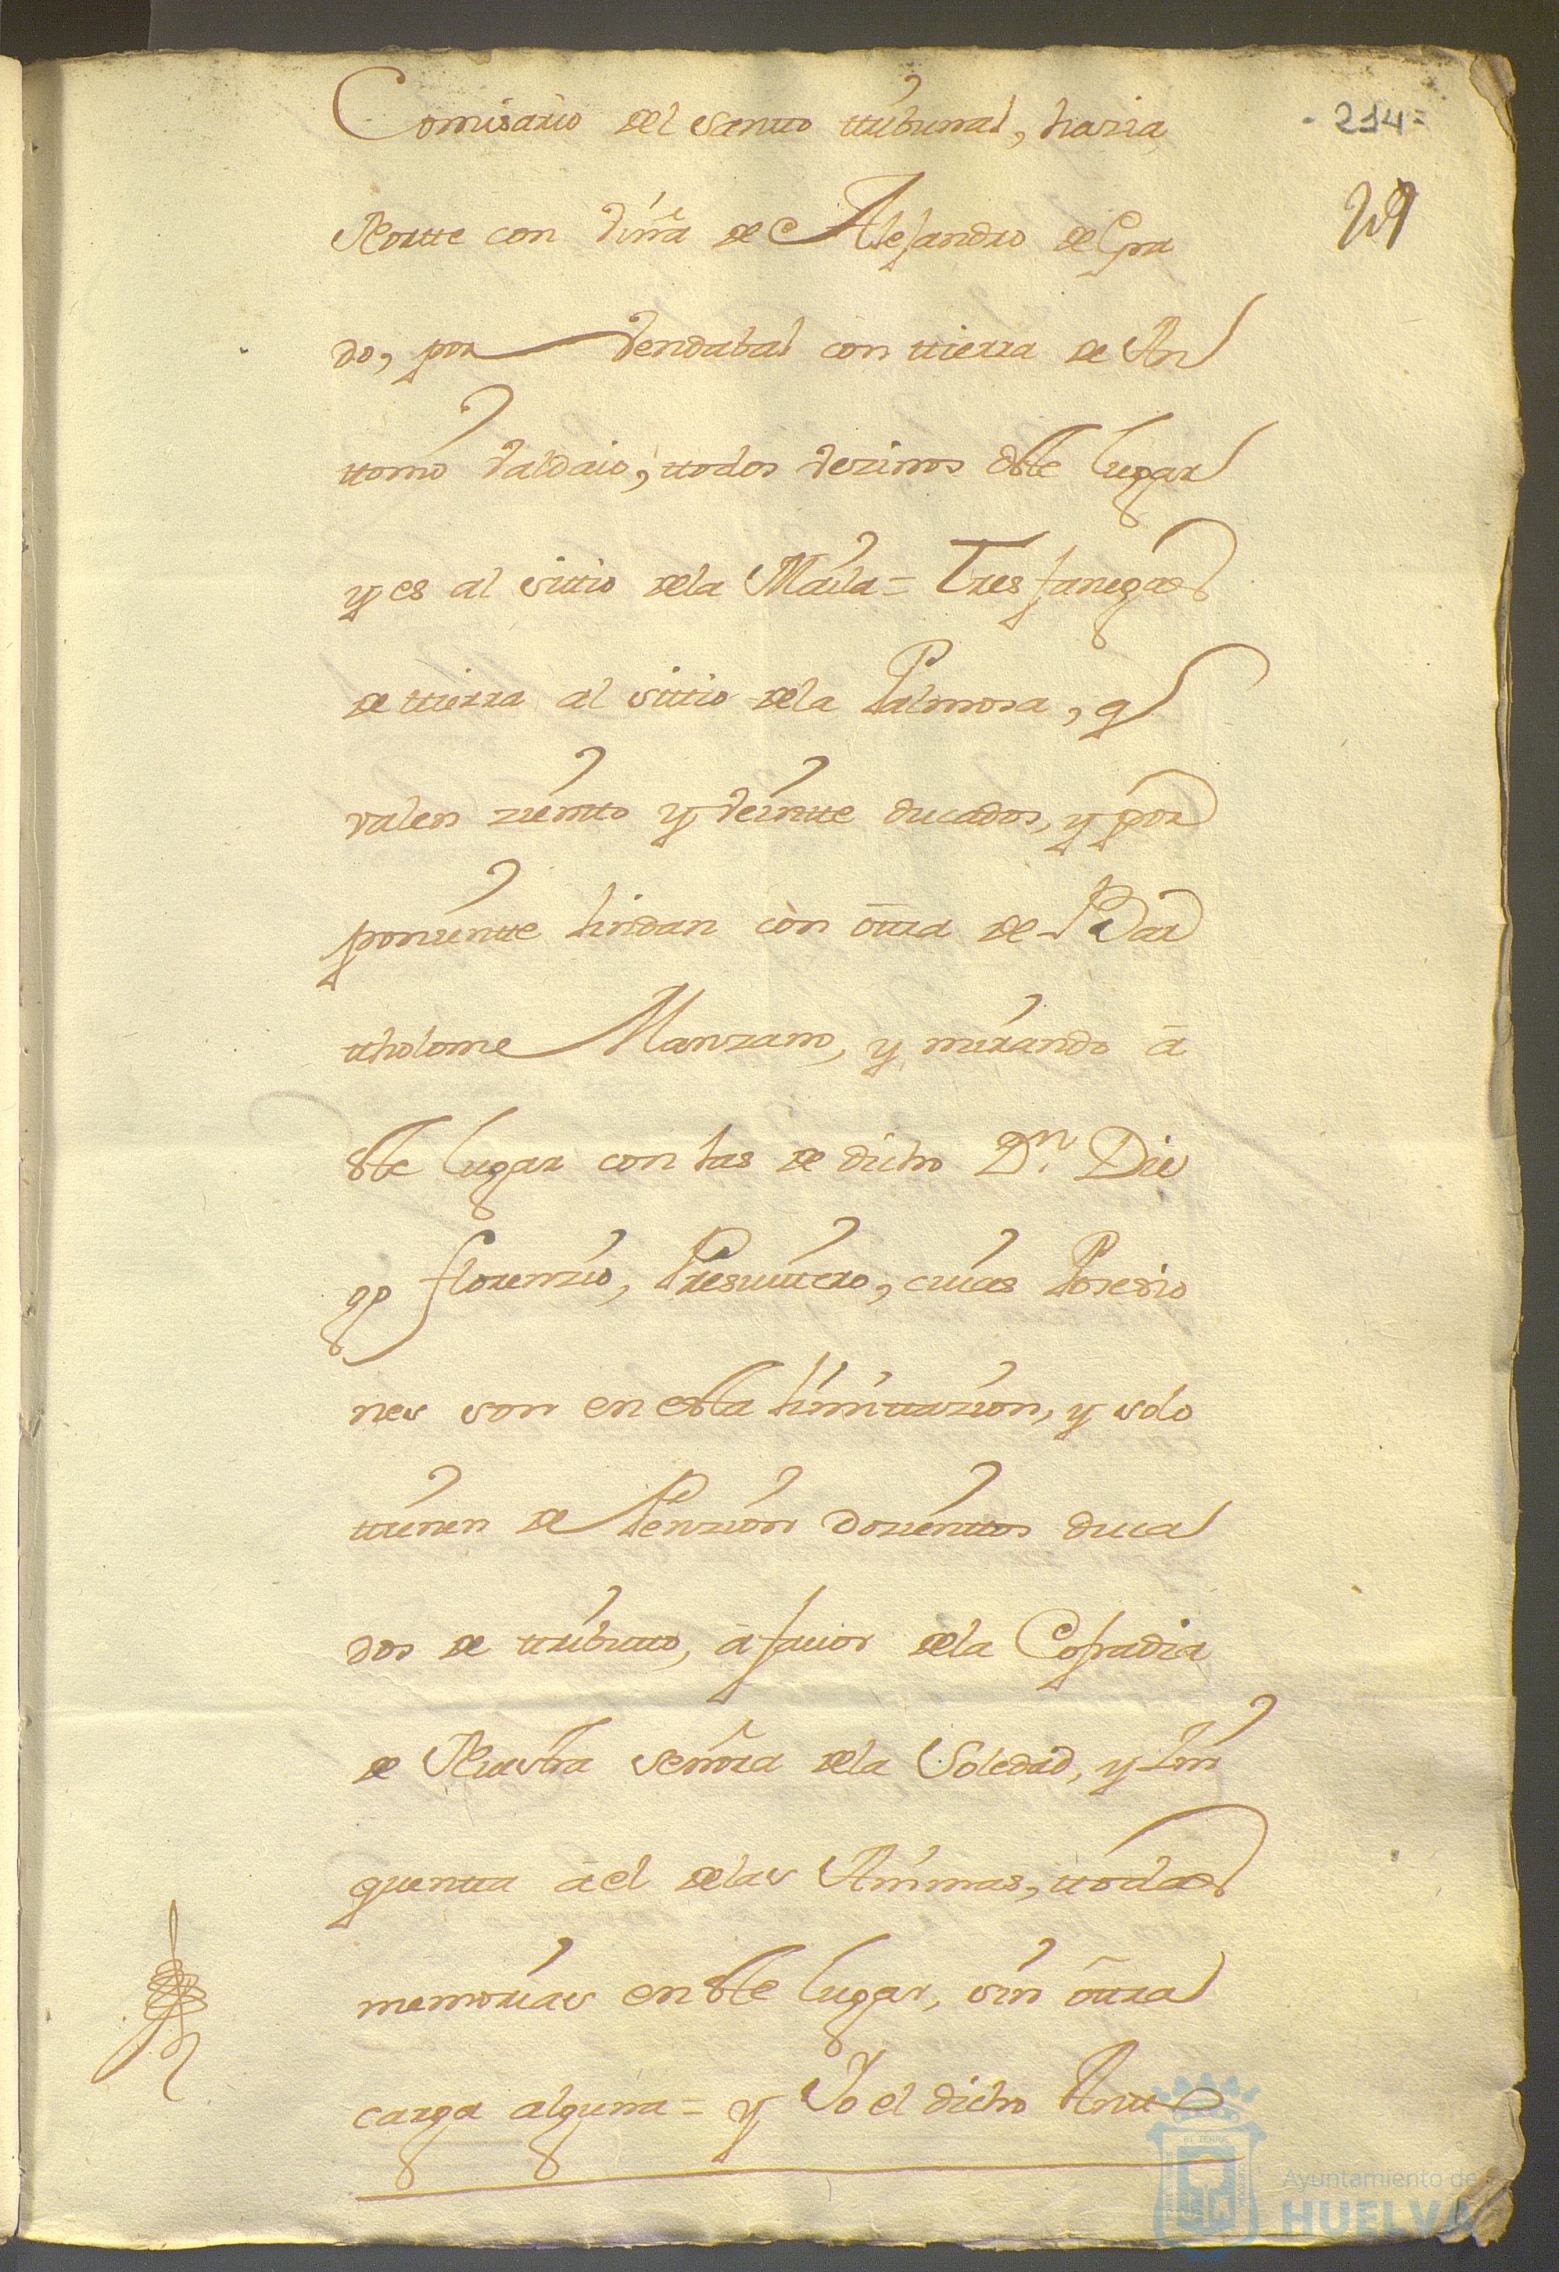 Comisario del santto ttribunal, hazia
- 214 =
Nortte con viña de Alejandro de Pra
29
do, por vendabal con ttierra de An
ttonio Valdaio, ttodos vezinos deste lugar
y es al sittio de la Maila = Tres fanegas
de ttierra al sittio de la Palmosa, q
valen zientto y veintte ducados, y por
ponientte lindan con ottra de Bar
ttholome Manzano, y mirando à
este lugar con las de dicho Dn. Die
go florenzio, Presvittero, cuias Posesio
nes son en esta limittazion, y solo
ttienen de Penzion dozienttos duca
dos de ttributto, à favor de la Cofradia
de Nuestra señora de la Soledad, y zin
quentta à el de las Animas, ttodas
memorias en este lugar, sin ottra
carga alguna = y Yo el dicho Antt
Ayuntamiento de
HUELVA